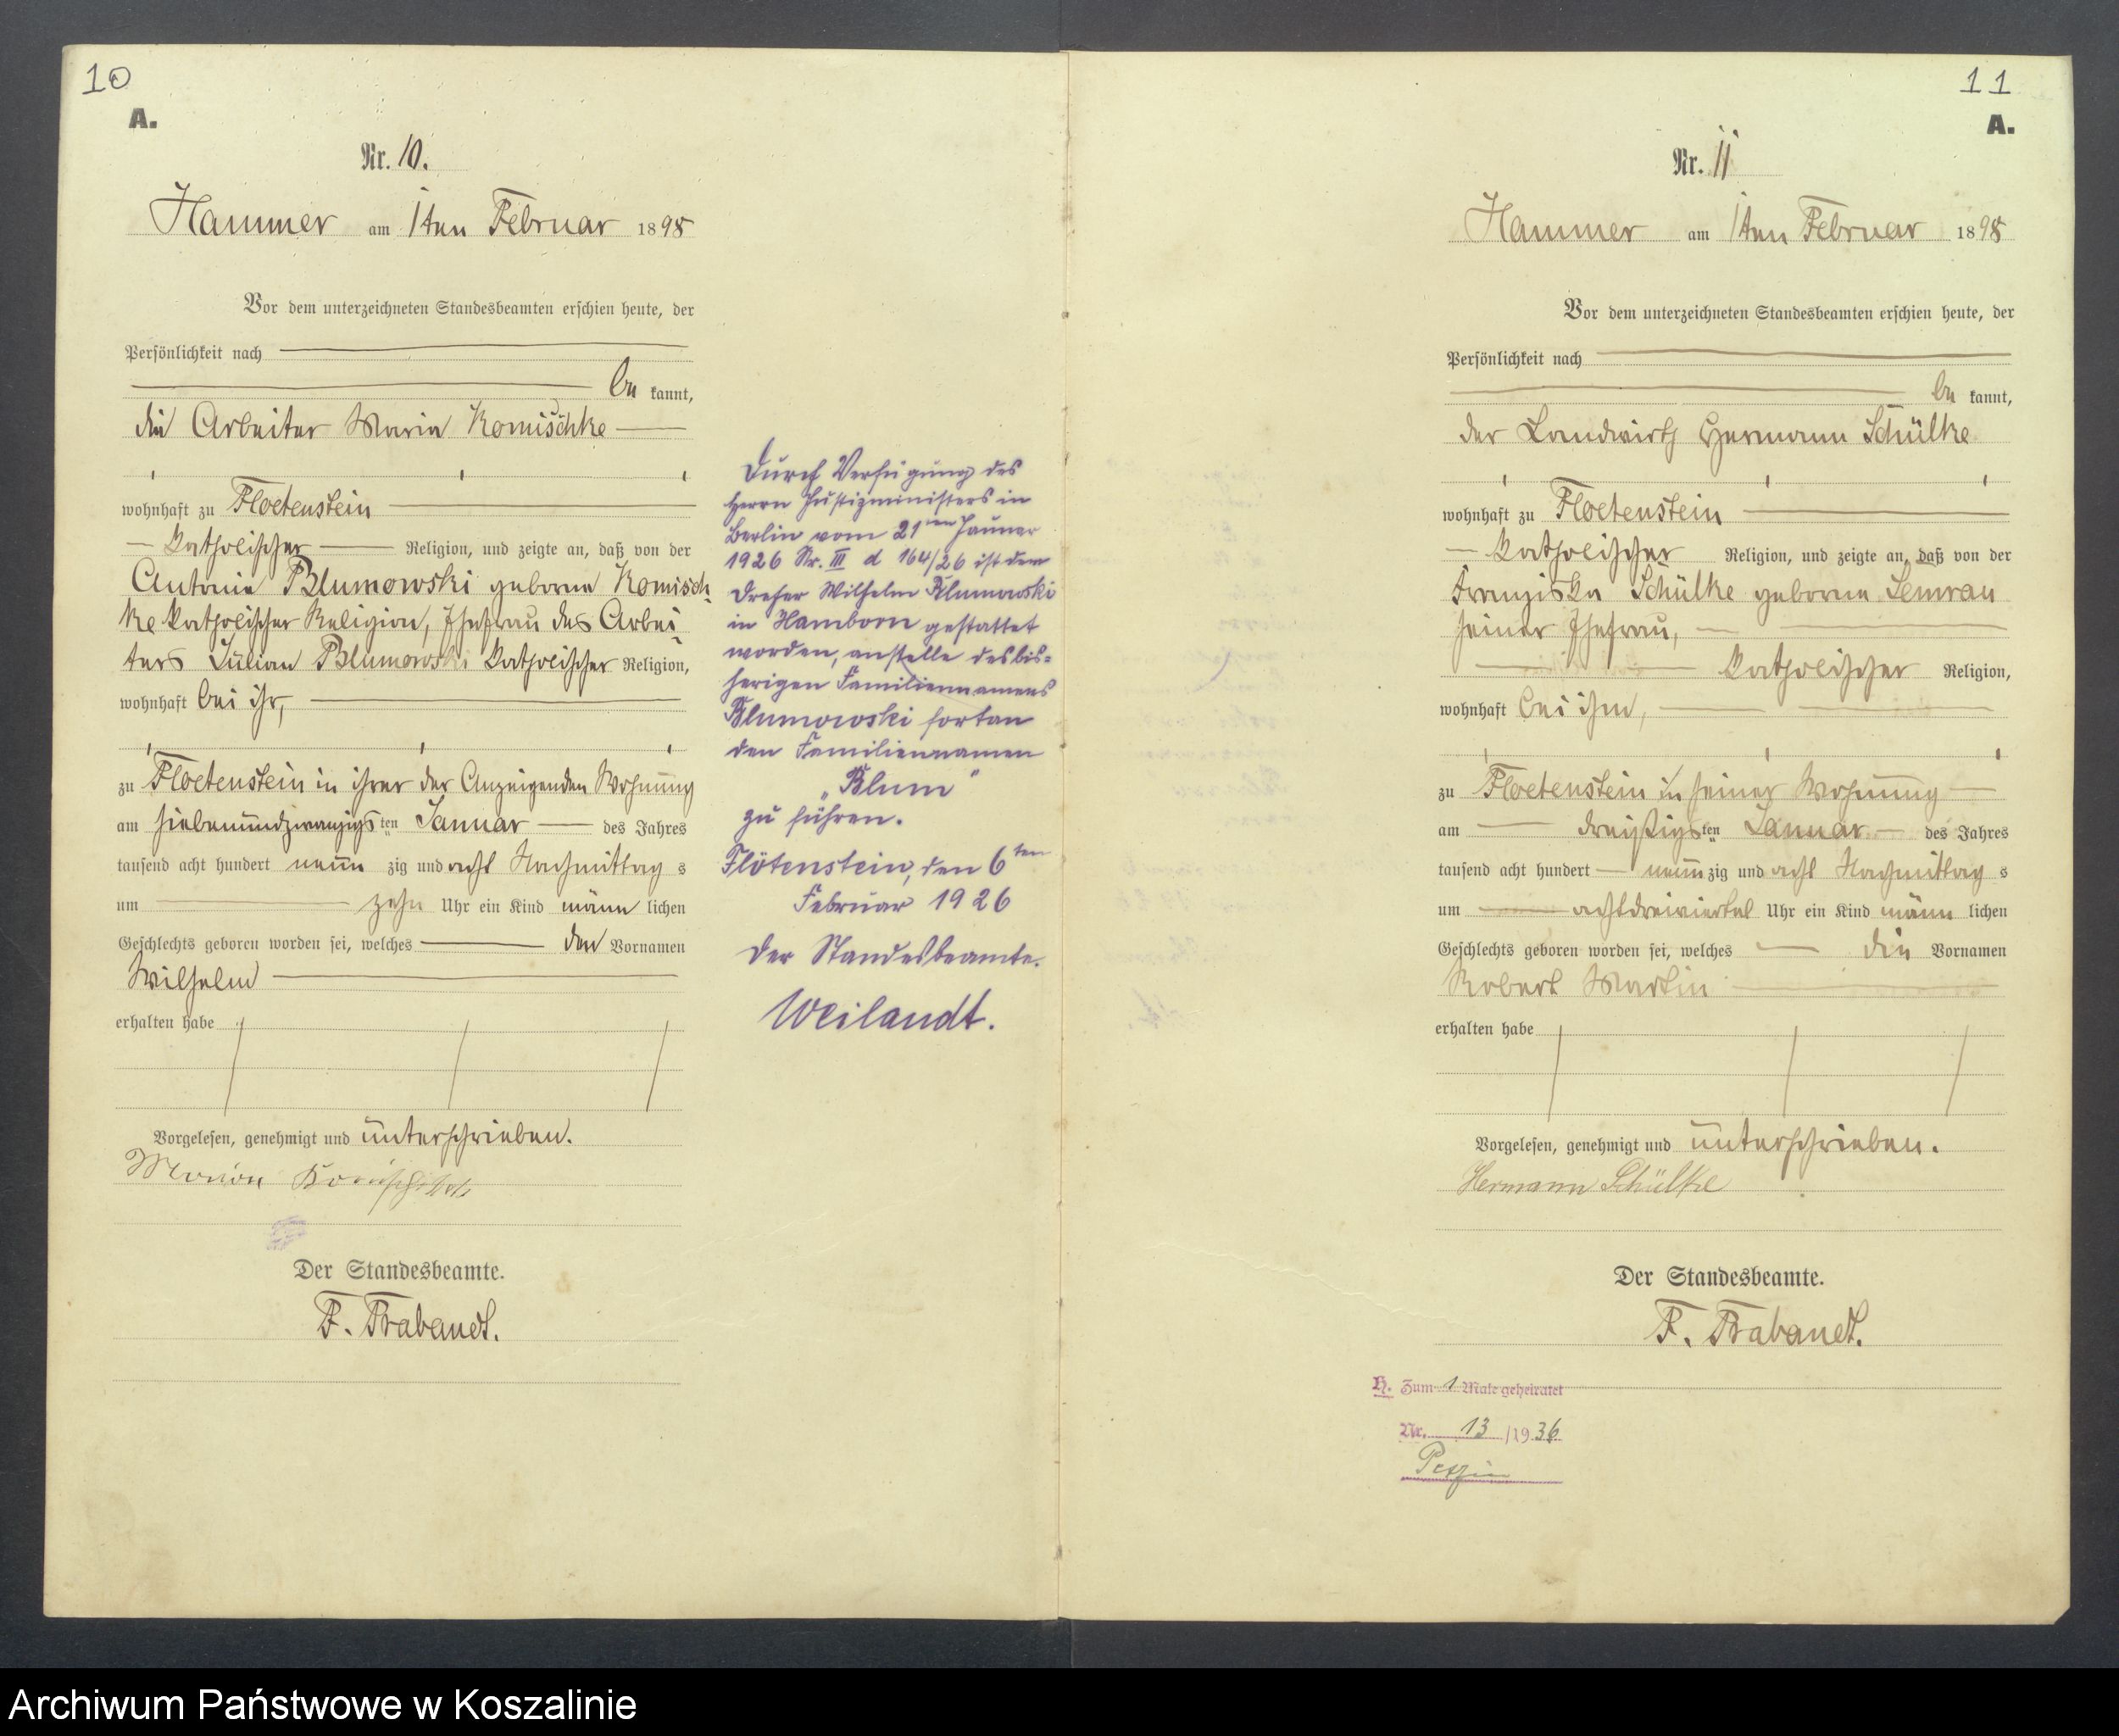 10
A.
Nr. 10.
Hammer am 1ten Februar 1898
Vor dem unterzeichneten Standesbeamten erschien heute, der
Persönlichkeit nach
be kannt,
die Arbeiter Maria Komischke
wohnhaft zu Floetenstein
katholischer Religion, und zeigte an, daß von der
Antonie Blumowski geborene Komisch
ke katholischer Religion, Ehefrau des Arbei
ters Julian Blumowski katholischer Religion,
wohnhaft bei ihr,
zu Floetenstein in ihrer der Anzeigenden Wohnung
am siebenundzwanzigsten Januar des Jahres
tausend acht hundert neun zig und acht Nachmittag s
um zehn Uhr ein Kind männ lichen
Geschlechts geboren worden sei, welches den Vornamen
Wilhelm
erhalten habe
Vorgelesen, genehmigt und unterschrieben.
Maria Komischke
Der Standesbeamte.
F. Brabandt.
Durch Verfügung des
Herrn Justizministers in
Berlin vom 21ten Januar
1926 Nr. III d 164/26 ist dem
Dreher Wilhelm Blumowski
in Hamborn gestattet
worden, anstelle des bis=
herigen Familiennamens
Blumowski fortan
den Familiennamen
„Blum"
zu führen.
Flötenstein, den 6ten
Februar 1926
Der Standesbeamte.
Weilandt.
11
A.
Nr. 11
Hammer am 1ten Februar 1898
Vor dem unterzeichneten Standesbeamten erschien heute, der
Persönlichkeit nach
be kannt,
der Landwirth Hermann Schülke
wohnhaft zu Floetenstein
katholischer Religion, und zeigte an, daß von der
Franziska Schülke geborene Semrau
seiner Ehefrau,
katholischer Religion,
wohnhaft bei ihm,
zu Floetenstein in seiner Wohnung
am dreißigsten Januar des Jahres
tausend acht hundert neun zig und acht Nachmittag s
um achtdreiviertel Uhr ein Kind männ lichen
Geschlechts geboren worden sei, welches die Vornamen
Robert Martin
erhalten habe
Vorgelesen, genehmigt und unterschrieben.
Hermann Schülke
Der Standesbeamte.
F. Brabandt.
H. Zum 1 Male geheiratet
Nr. 13 /1936
Archiwum Państwowe w Koszalinie